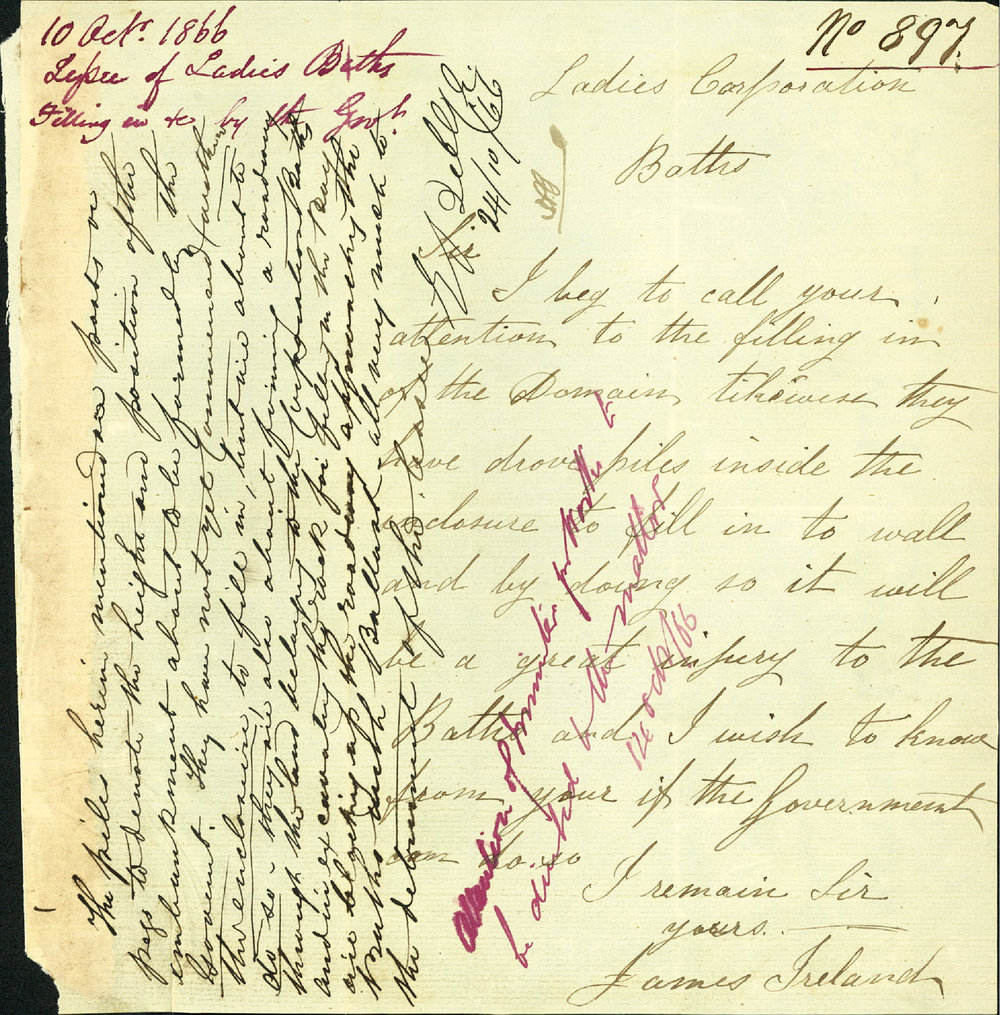 10 Octr. 1866
Lessee of Ladies Baths
Filling in &c by the Govt.
No 897.
Ladies Corporation
Baths
Sir
I beg to call your
attention to the filling in
of the Domain, likewise they
have drove piles inside the
inclosure to fill in to wall
and by doing so it will
be a great injury to the
Baths and I wish to know
from your if the Government
can do so
I remain Sir
yours.
James Ireland
Attention of Committee for Works to
be directed to the matter
12 Octr/66
The piles herein mentioned are posts or
pegs to denote the height and position of the
embankment about to be formed by the
Goverment. They have not yet Commenced (further
the enclosure) to fill in, but are about to
do so - they are also about forming a roadway
through the land belonging to the Corporation Baths
and in excavating the rock for filling in they
are blocking up the roadway approaching the
Baths with Ballast all very much to
the detriment of the Lessee
24/10/66